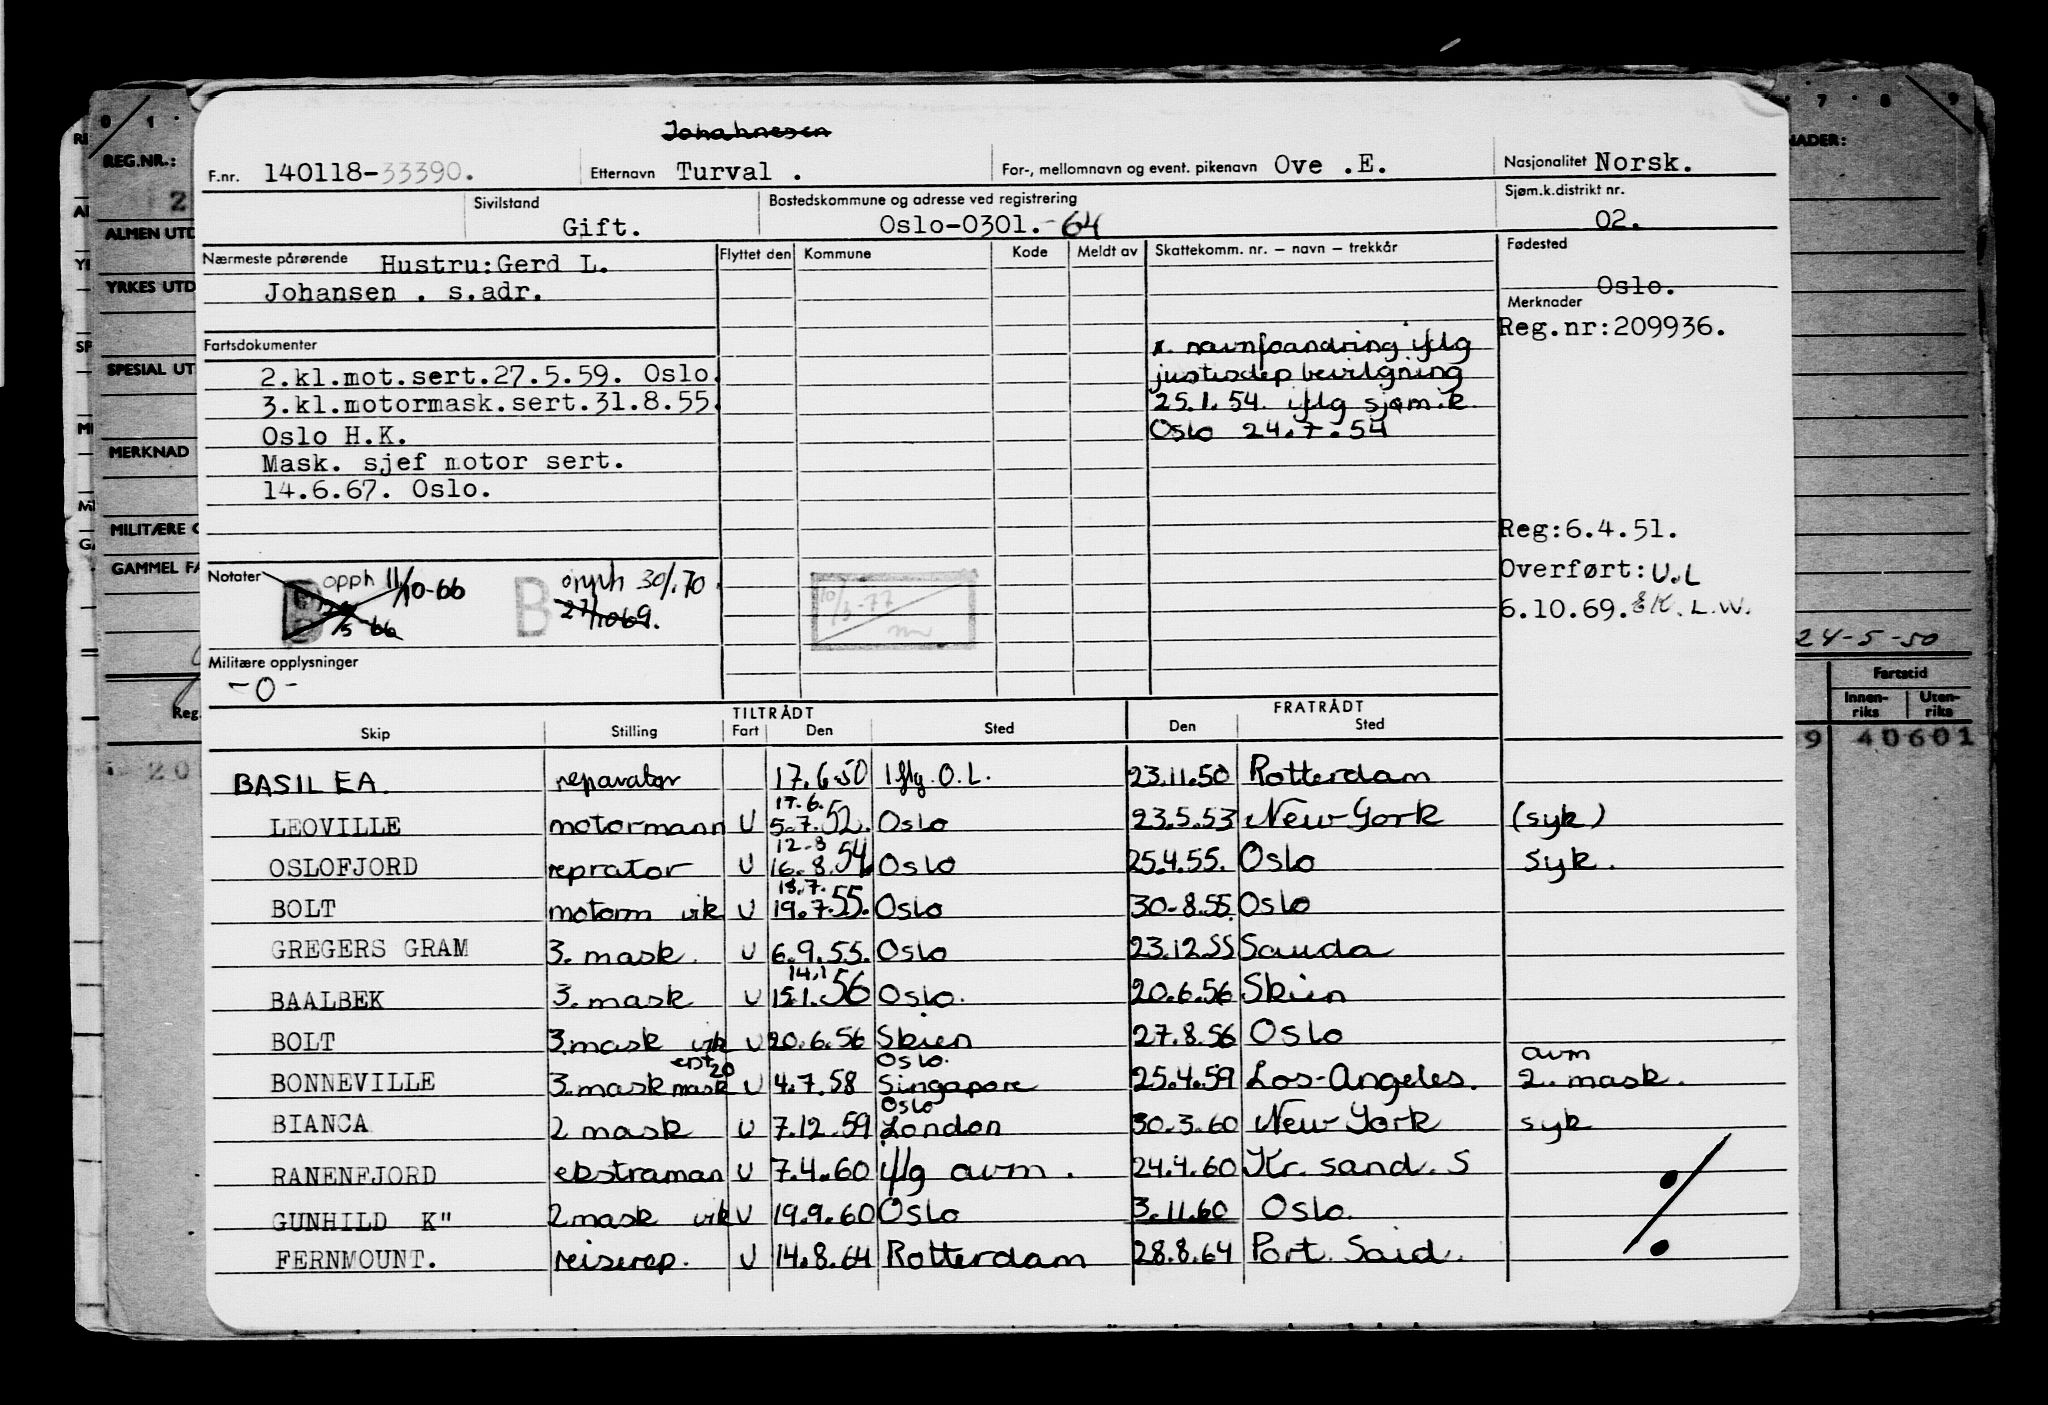 Johahnesen
F.nr. 140118-33390. Etternavn Turval . For-, mellomnavn og event. pikenavn Ove .E. Nasjonalitet Norsk.
Sivilstand Gift. Bostedskommune og adresse ved registrering Oslo-0301.-64 Sjøm.k.distrikt nr. 02.
Nærmeste pårørende Hustru:Gerd L. Flyttet den Kommune Kode Meldt av Skattekomm. nr. – navn – trekkår Fødested
Johansen . s.adr. Oslo.
Merknader
Reg.nr:209936.
Fartsdokumenter x. navnfoandring iflg
2.kl.mot.sert.27.5.59. Oslo. justisdep bevilgning
3.kl.motormask.sert.31.8.55. 25.1.54. iflg sjøm.k.
Oslo H.K. Oslo 24.7.54
Mask. sjef motor sert.
14.6.67. Oslo.
Reg:6.4.51.
Overført: U.L
6.10.69. L.W.
Notater opph 11/10-66 B opph 30/1.70.
5 66 27/10 69. 10/3-77
Militære opplysninger
-0-
TILTRÅDT FRATRÅDT
Skip Stilling Fart Den Sted Den Sted
BASILEA. reparatør 17.6.50 Iflg. O.L. 23.11.50 Rotterdam
17.6.
LEOVILLE motormann U 5.7.52. Oslo 23.5.53 New York (syk)
12-8
OSLOFJORD reprator U 16.8.54 Oslo 25.4.55. Oslo syk.
18.7.
BOLT motorm vik U 19.7.55. Oslo 30-8.55. Oslo
GREGERS GRAM 3. mask. U 6.9.55. Oslo 23.12.55 Sauda
14.1
BAALBEK 3. mask U 15.1.56 Oslo. 20.6.56 Skien
BOLT 3.mask vik U 20.6.56 Skien 27.8.56 Oslo
erst 20 Oslo. avm
BONNEVILLE 3.mask mask U 4.7.58 Singapore 25.4.59 Los-Angeles. 2. mask.
Oslo
BIANCA 2 mask U 7.12.59 London 30.3.60 New York syk
RANENFJORD ekstraman U 7.4.60 iflg avm. 24.4.60 Kr. sand. S
GUNHILD K" 2mask vik U 19.9.60 Oslo 3.11.60 Oslo.
FERNMOUNT. reiserep. U 14.8.64 Rotterdam 28.8.64 Port Said.
0 1
REG.NR.:
2
ALMEN UTD
YRKES UTD
SPESIAL UT
MERKNAD
MILITÆRE
GAMMEL FA
Reg.
20
7 8 9
NADER:
24-5-50
Fartstid
Innen-riks Uten-riks
9 40601